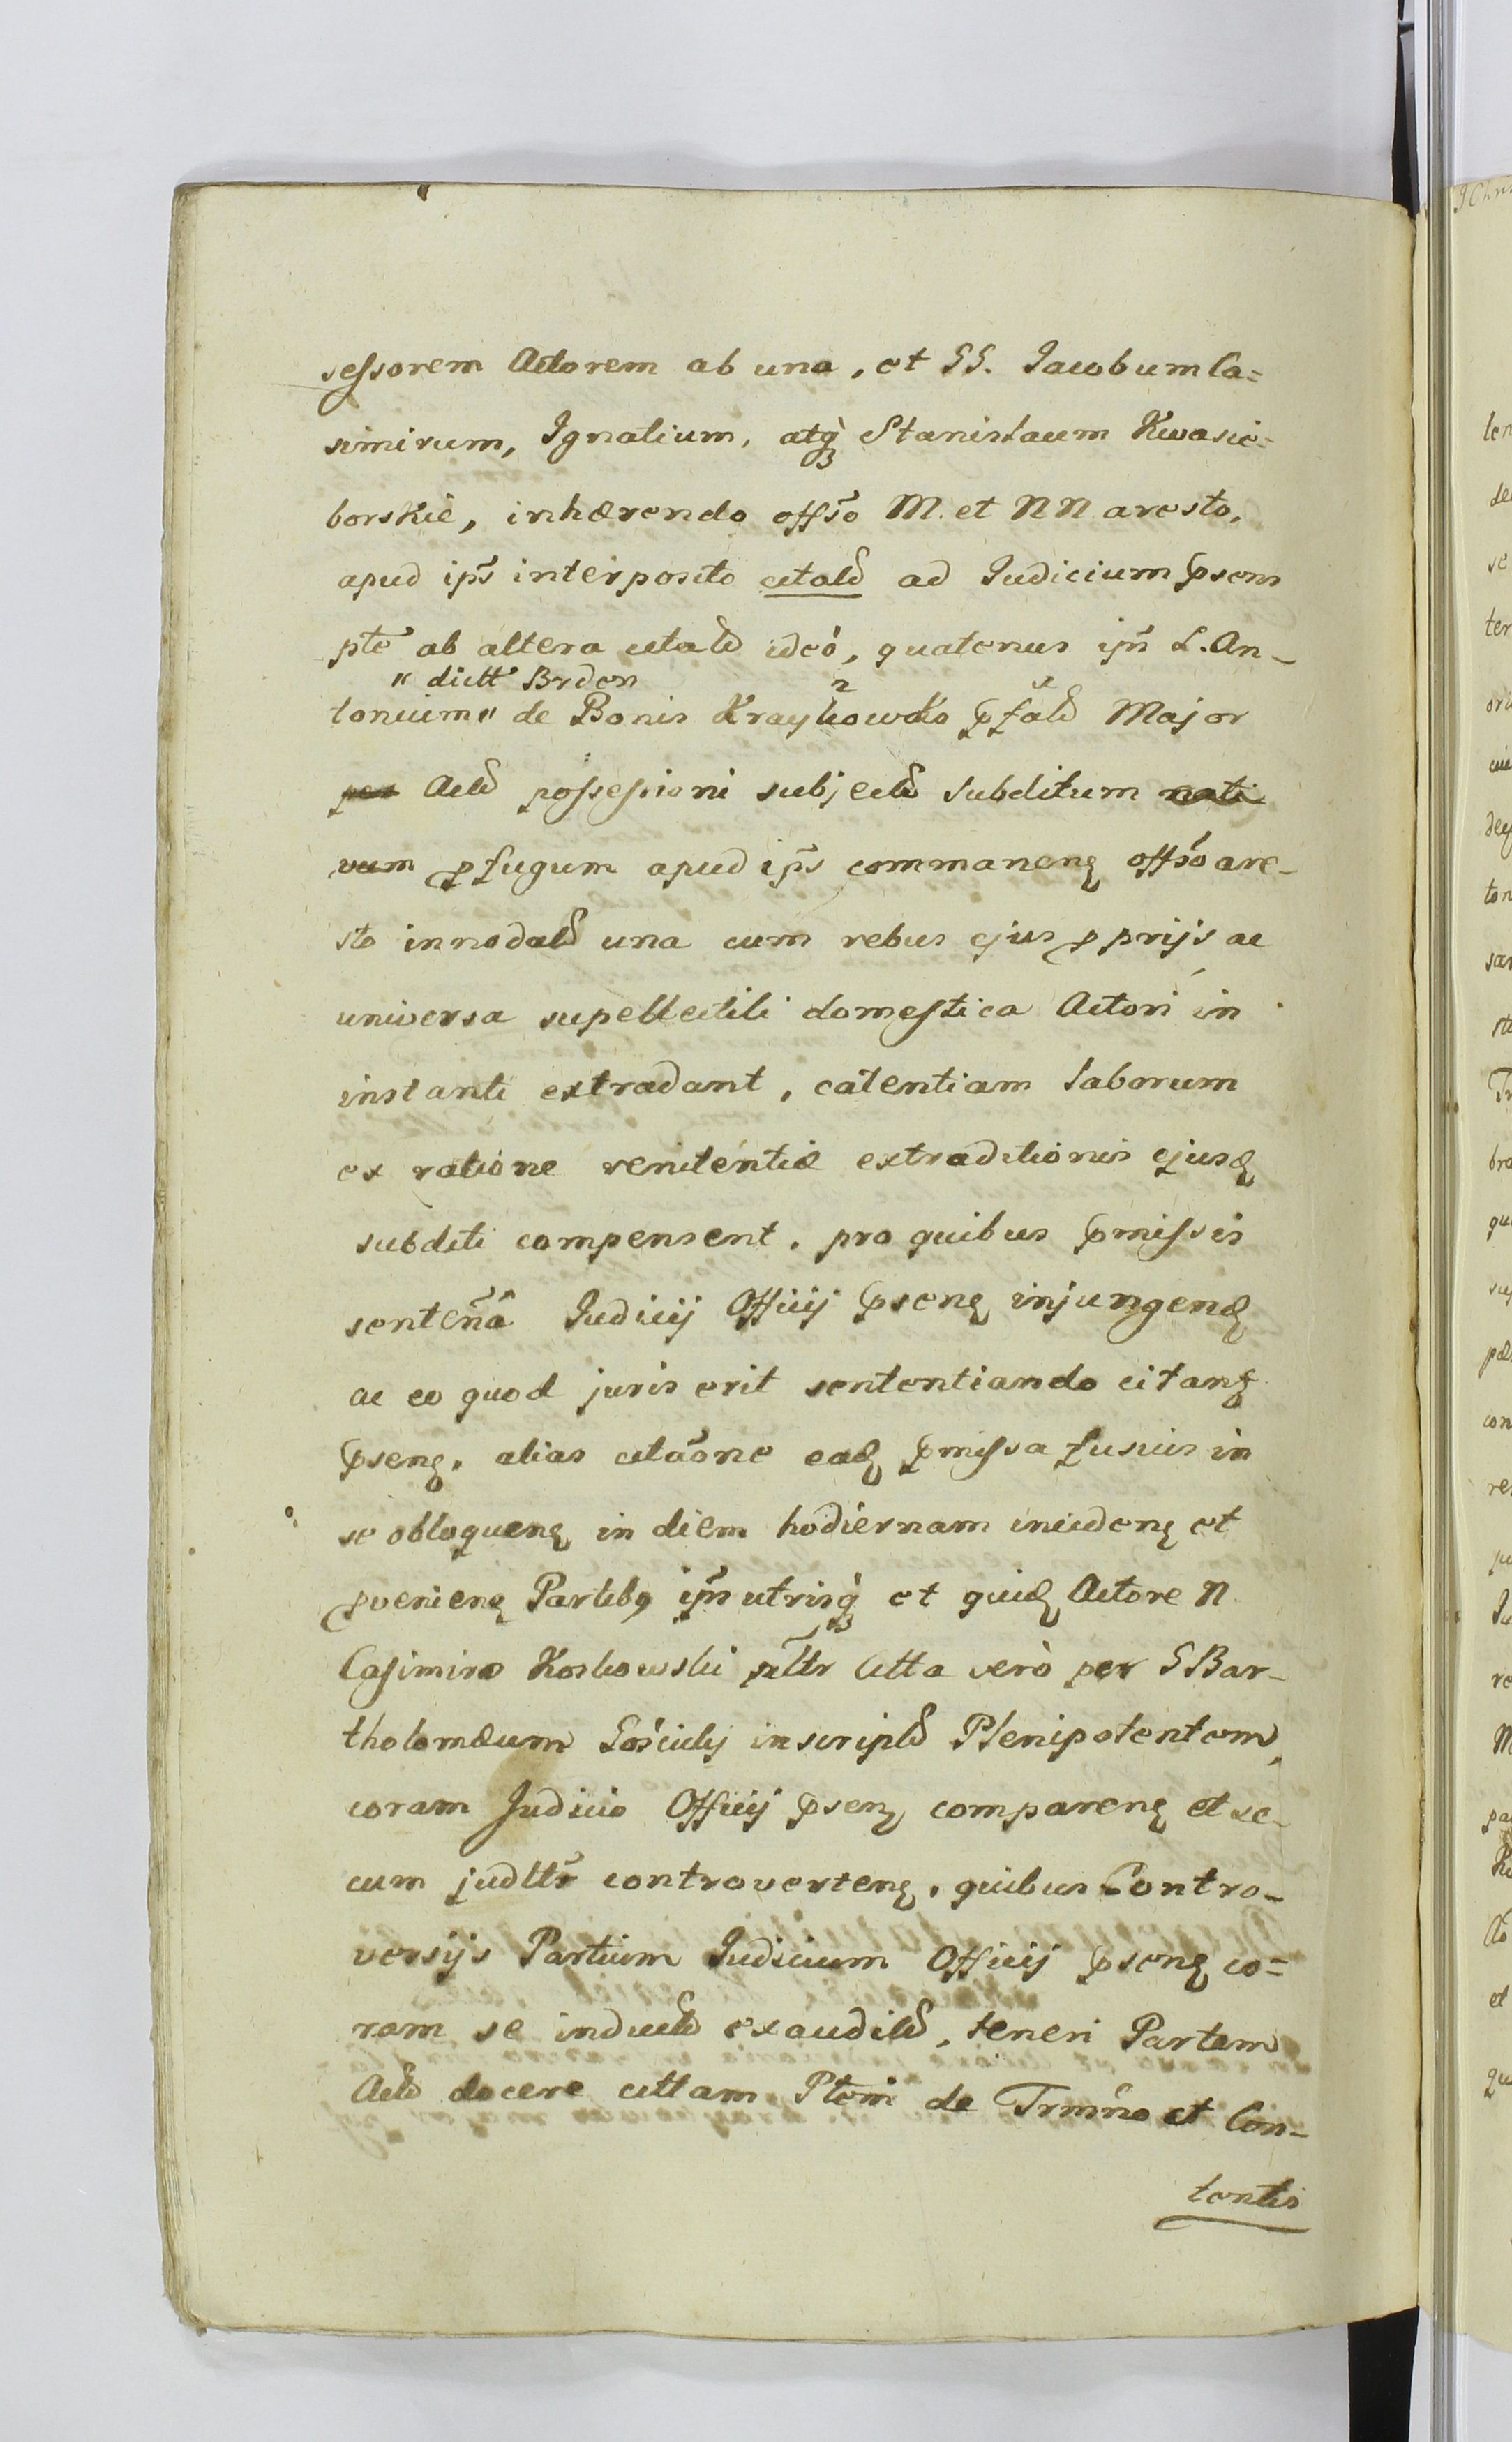 sessorem Actorem ab una, et GG. Jacobum Ca=
simirum, Ignatium, atq̀₃ Stanislaum Kwasie=
borskie, inhærendo offso M. et NN aresto,
apud ips interposito citatd ad Judicium psens
pte ab altera citatd ideò, quatenus ipn L. An-
" dictt Brdon
tonium" de Bonis Kraykowko pfatd Major
per Actd possessioni subjectd subditum nati
vum pfugum apud ips commanenȩ offso are-
sto innodatd una cum rebus ejus pprijs ac
universa supellectili domestica Actori in
instanti extradant, carentiam laborum
ex ratione renitentiæ extraditionis ejusđ
subditi compensent, pro quibus pmissis
sentenâ Judicij Officij psenȩ injungenđ
ac eo quod juris erit sententiando citanđ
psenȩ. alias citaone eađ pmissa fusius in
se obloquenȩ in diem hodiernam incidenȩ et
pvenienȩ Partibȝ ipn utrisq̀₃ et quiđ Actore N
Casimiro Koskowski pltr Citta verò per G Bar-
tholomæum Gościcky inscriptd Plenipotentem,
coram Judicio Officij psenȩ comparenȩ et se-
cum judltr controvertenȩ, quibus Contro-
versijs Partium Judicium Officij psenȩ co=
ram se inductd exauditd, teneri Partem
Actd docere cittam Ptem de Trmño et Con-
tentis